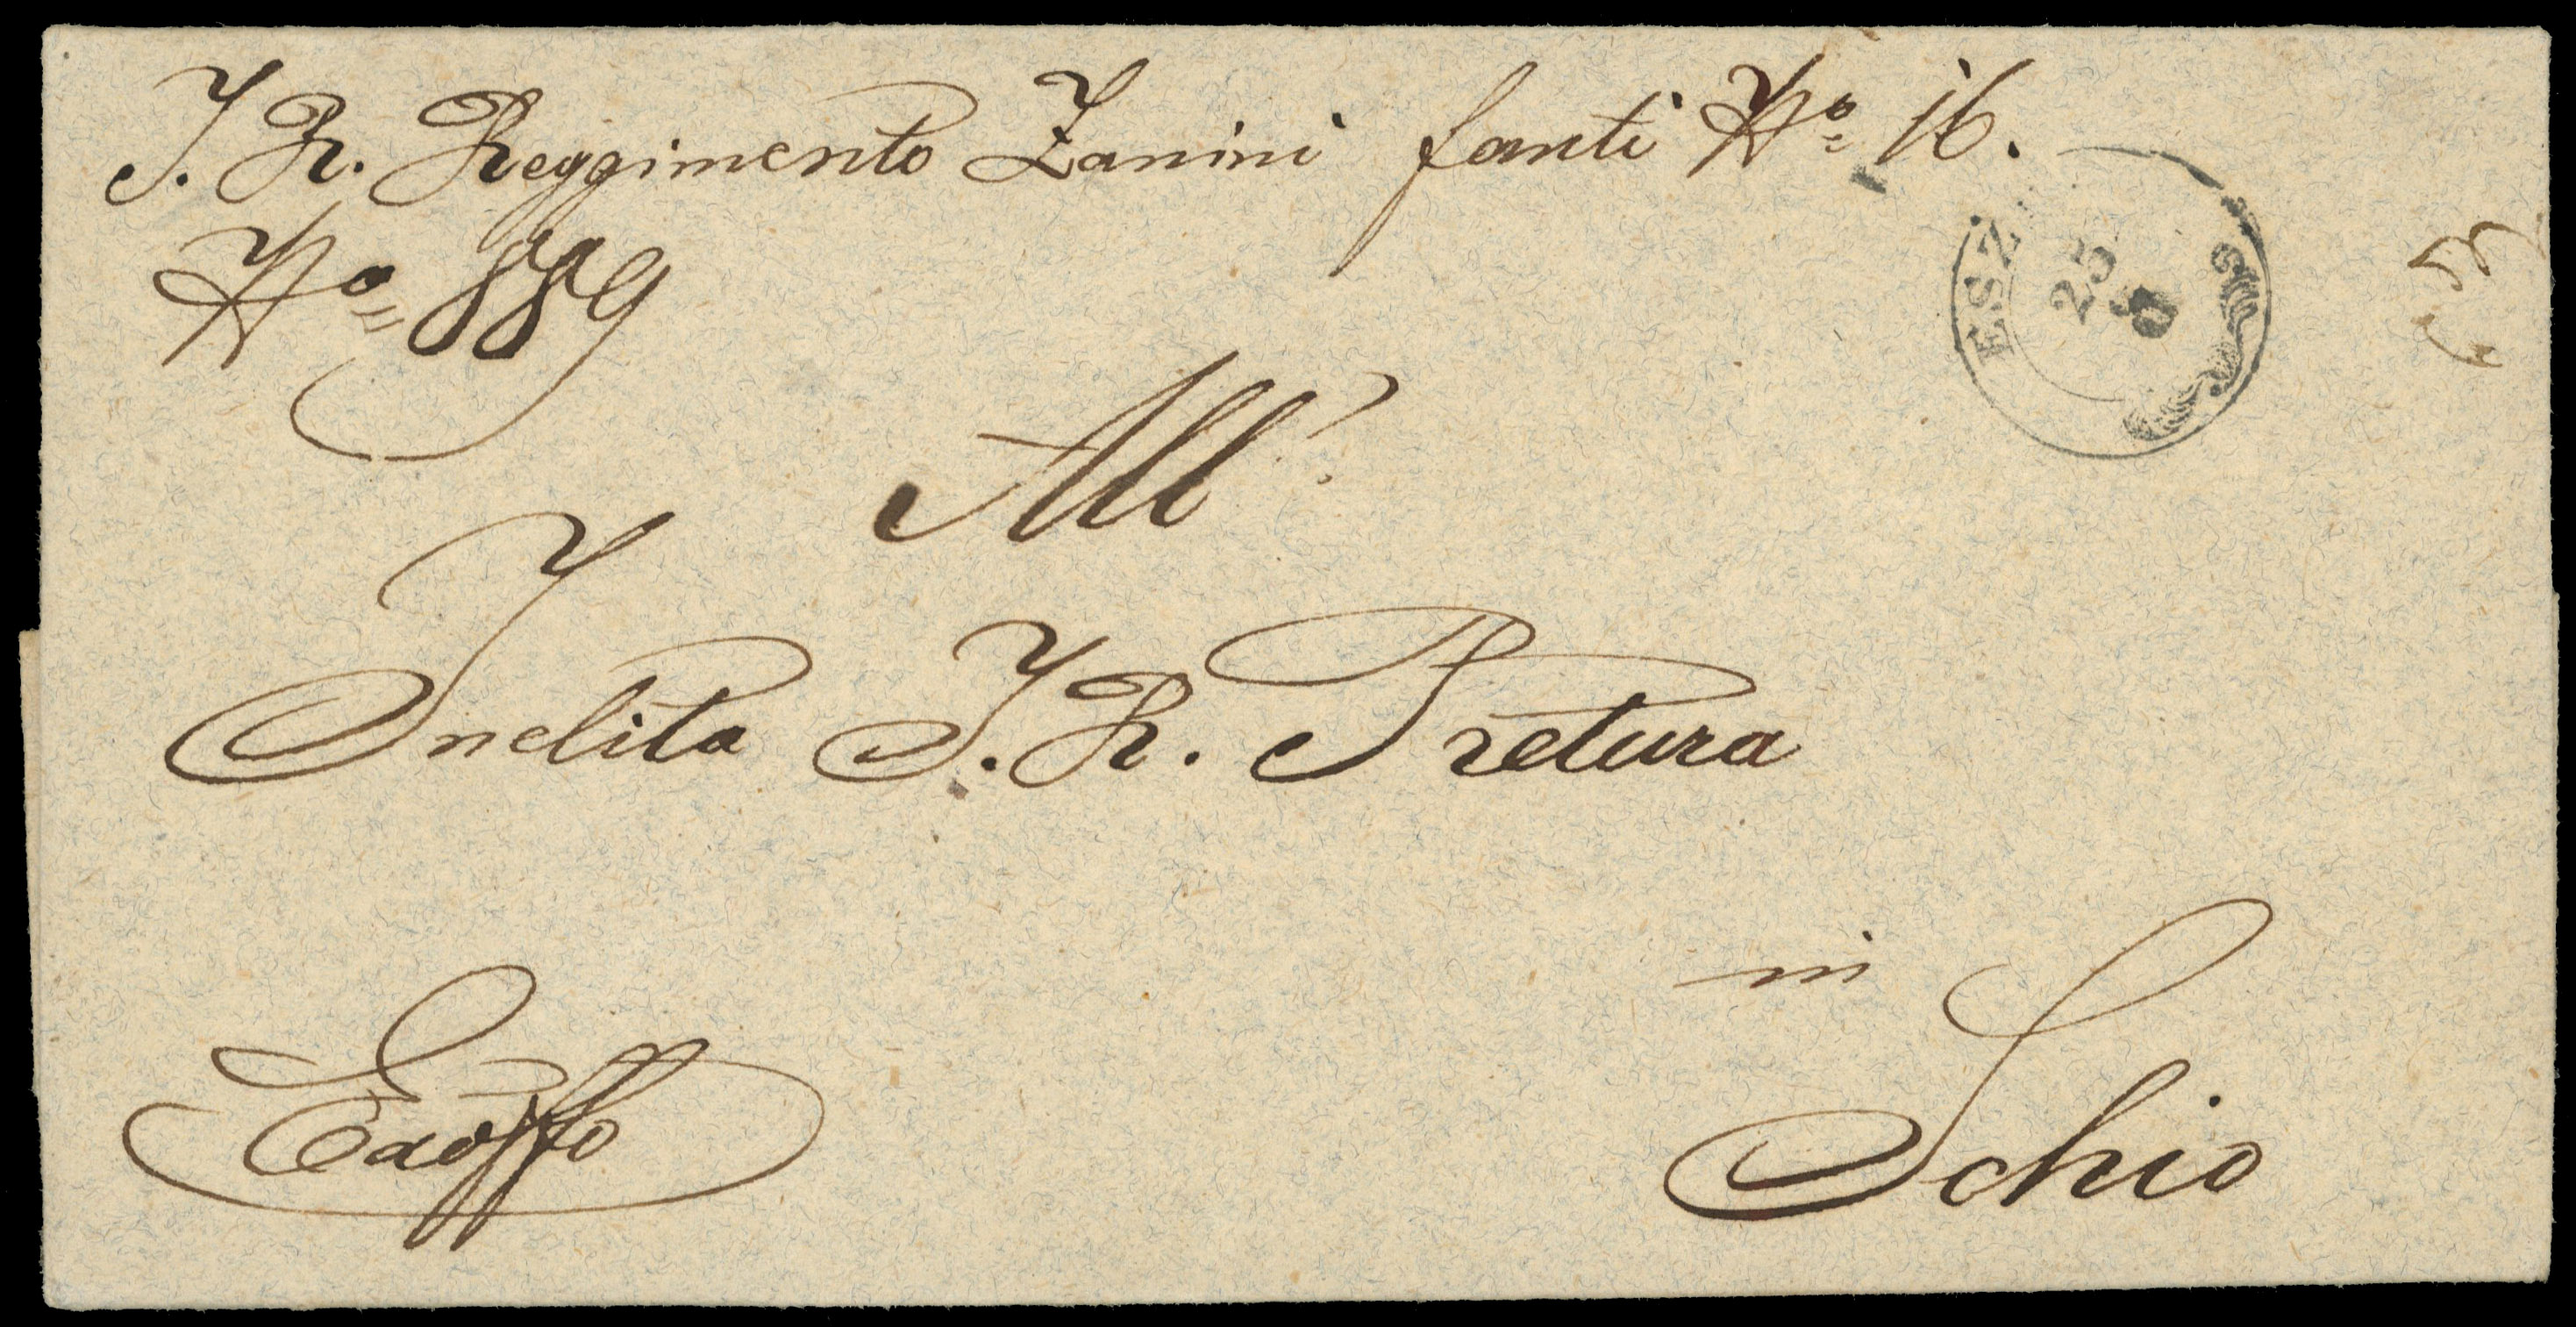 I. R. Reggimento Zanini fanti No 16.
No 889
ESZ
25
8
All'
Inclita I. R. Pretura
in
Schio
Exoffo